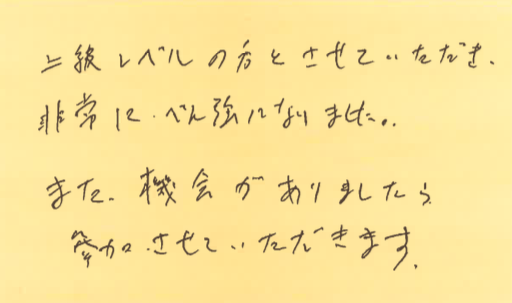 上級レベルの方とさせていただき、
非常に、べん強になりました。
また、機会がありましたら
参加させていただきます。